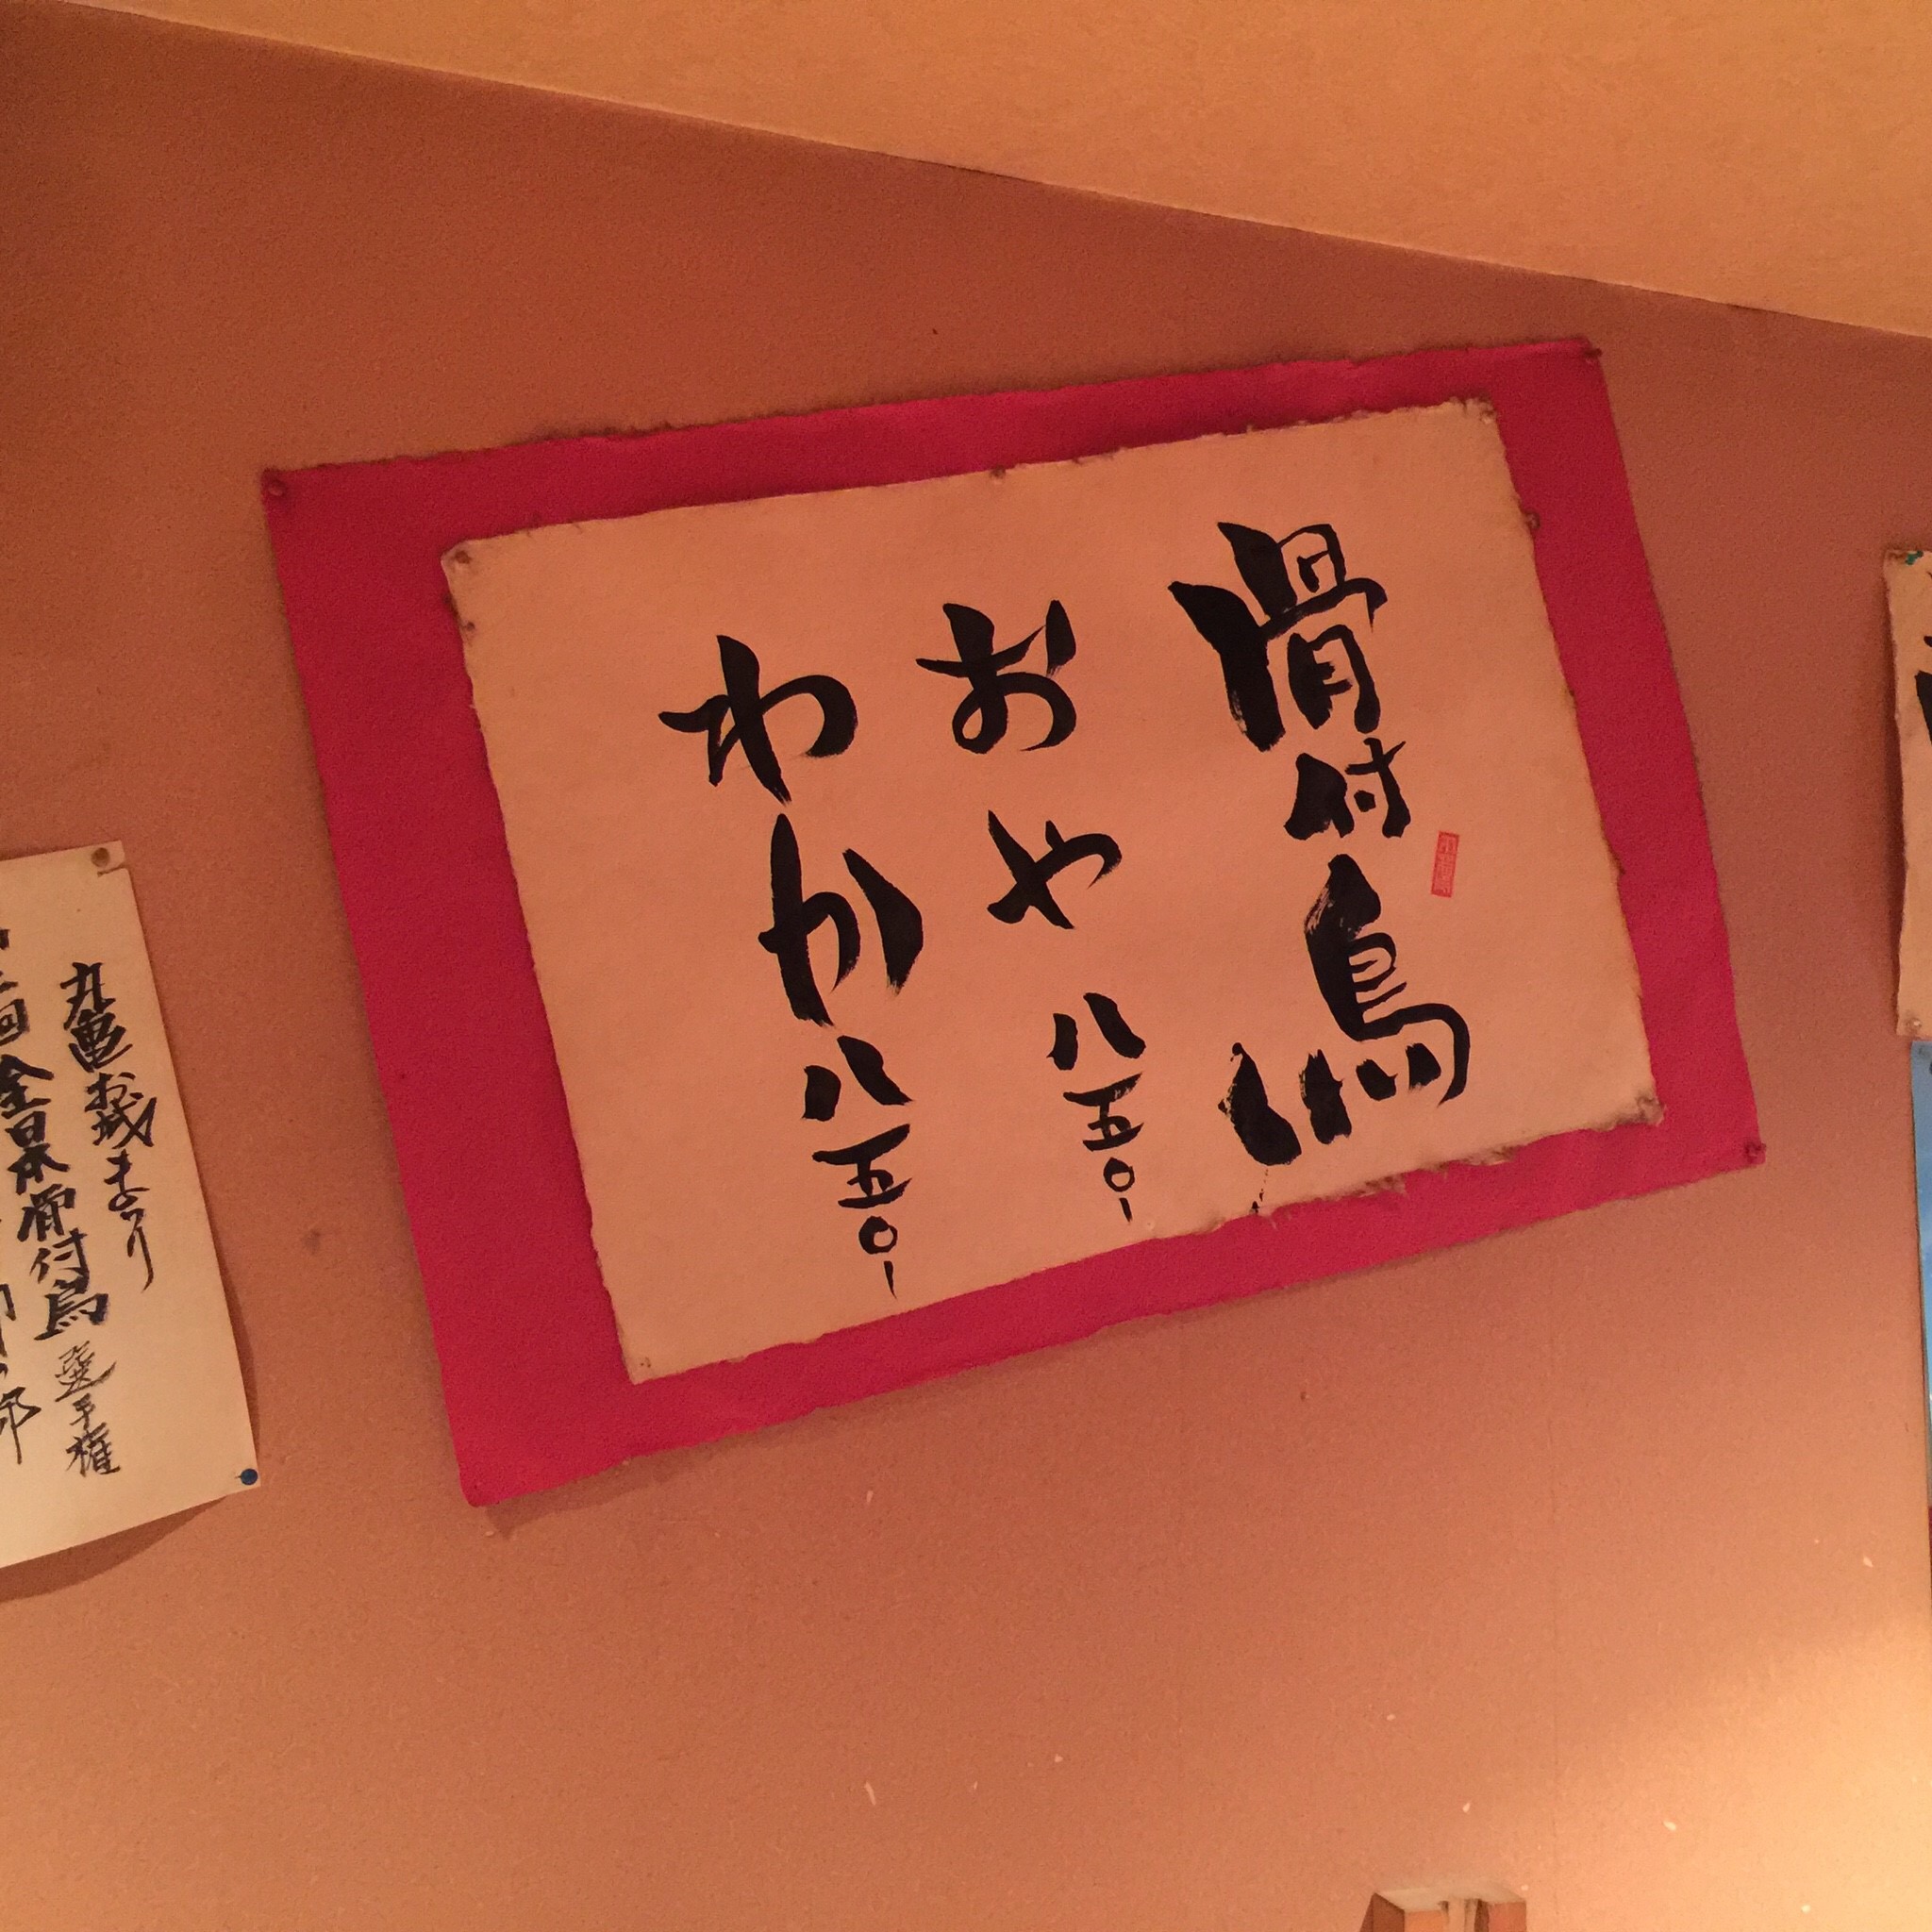 骨付鳥
おや 八五〇-
わか 八五〇-
丸亀お城まつり
全日本骨付鳥選手権